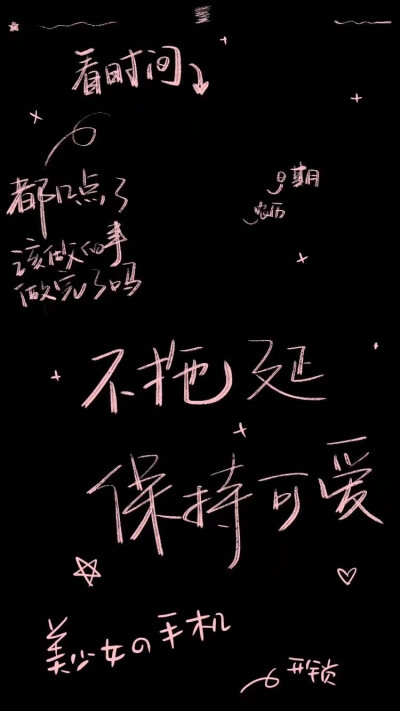 看时间
都几点了
该做的事
做完了吗
日期
农历
不拖延
保持可爱
美少女の手机
开锁